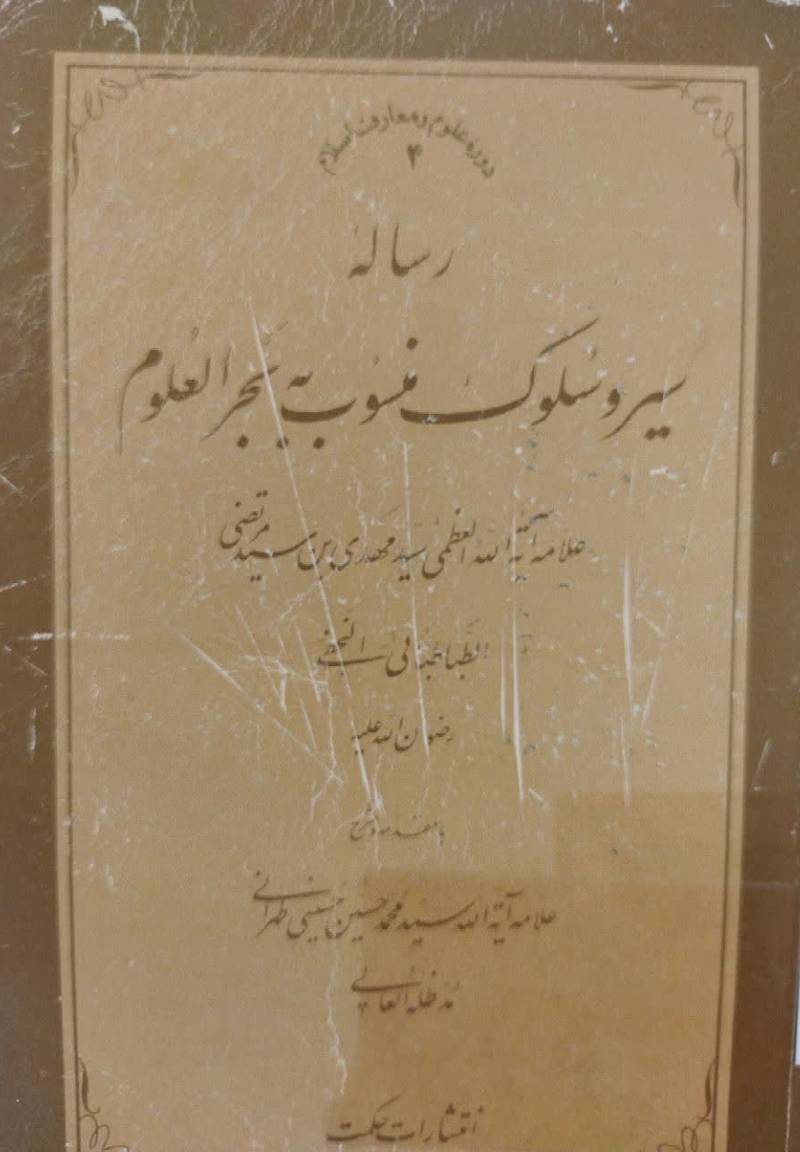 دوره علوم و معارف اسلام
۴
رسالهٔ
سیر و سلوک منسوب به بحر العُلوم
علامه آیة الله العظمی سید مهدی ابن سید مرتضی
الطباطبائی النجفی
رضوان الله علیه
با مقدمه و شرح
علامه آیة الله سید محمد حسین حسینی طهرانی
مُدّ ظله العالی
انتشارات حکمت